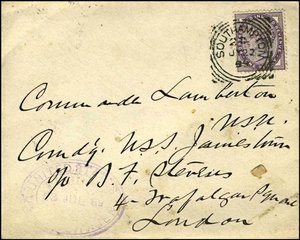 SOUTHAMPTON
Commander Lamberton
U.S.N.
Comd'g. U.S.S. Jamestown
c/o B. F. Stevens
4 Trafalgar Square
London